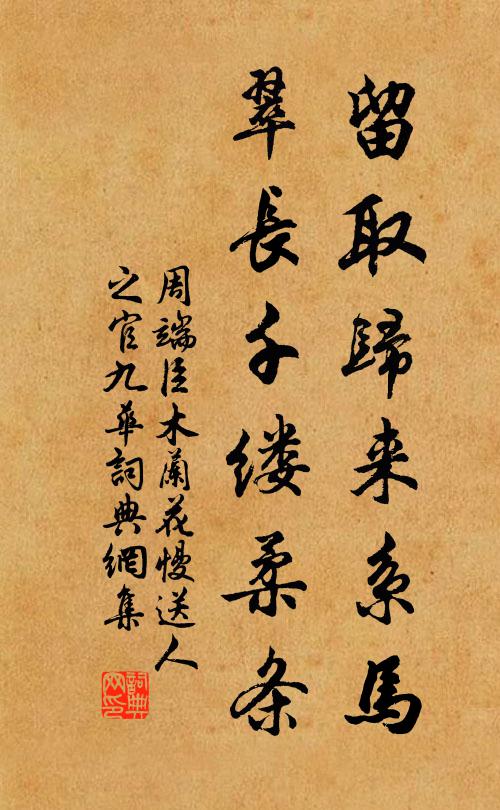 留取歸来系马
翠長千缕柔条
周端臣木蘭花慢送人
之官九華詞典網集
詞典网印